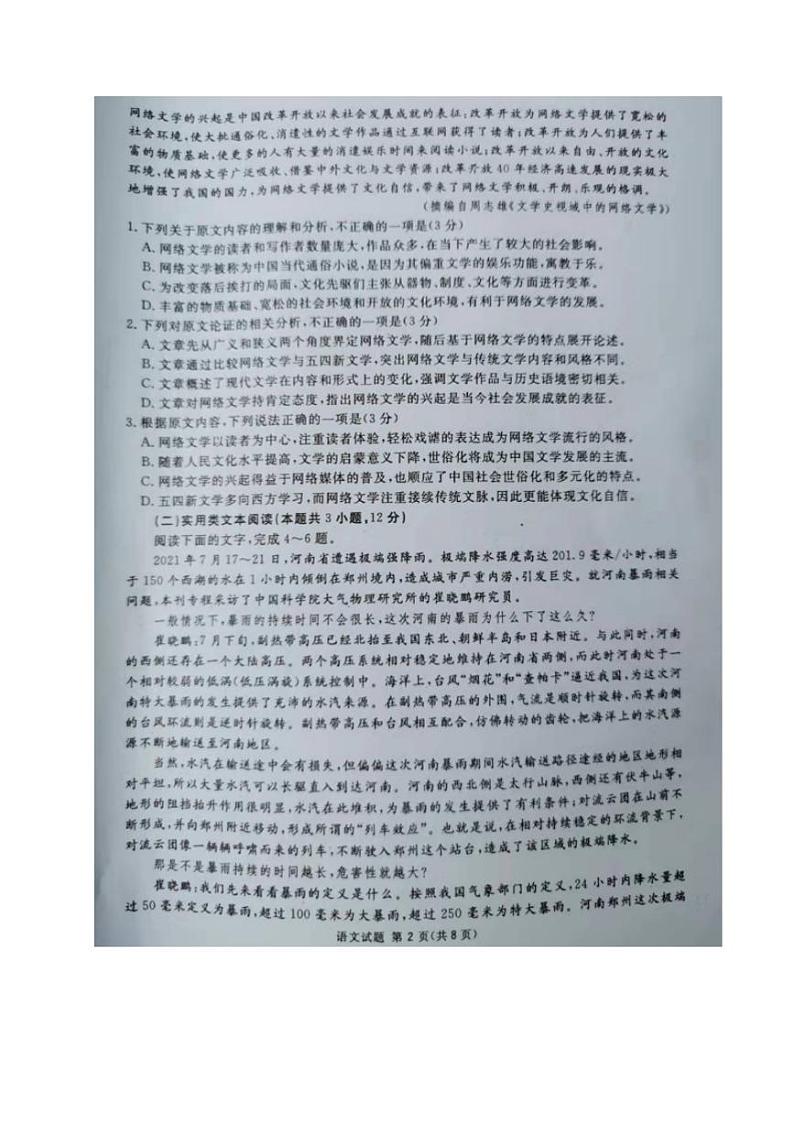 网络文学的兴起是中国改革开放以来社会发展成就的表征:改革开放为网络文学提供了宽松的
社会环境,使大批通俗化、消遣性的文学作品通过互联网获得了读者;改革开放为人们提供了丰
富的物质基础,使更多的人有大量的消遣娱乐时间来阅读小说;改革开放以来自由、开放的文化
环境,使网络文学广泛吸收、借鉴中外文化与文学资源;改革开放40年经济高速发展的现实极大
地增强了我国的国力,为网络文学提供了文化自信,带来了网络文学积极、开朗、乐观的格调。
(摘编自周志雄《文学史视域中的网络文学》)
1.下列关于原文内容的理解和分析,不正确的一项是(3分)
A.网络文学的读者和写作者数量庞大,作品众多,在当下产生了较大的社会影响。
B.网络文学被称为中国当代通俗小说,是因为其偏重文学的娱乐功能,寓教于乐。
C.为改变落后挨打的局面,文化先驱们主张从器物、制度、文化等方面进行变革。
D.丰富的物质基础、宽松的社会环境和开放的文化环境,有利于网络文学的发展。
2.下列对原文论证的相关分析,不正确的一项是(3分)
A.文章先从广义和狭义两个角度界定网络文学,随后基于网络文学的特点展开论述。
B.文章通过比较网络文学与五四新文学,突出网络文学与传统文学内容和风格不同。
C.文章概述了现代文学在内容和形式上的变化,强调文学作品与历史语境密切相关。
D.文章对网络文学持肯定态度,指出网络文学的兴起是当今社会发展成就的表征。
3.根据原文内容,下列说法正确的一项是(3分)
A.网络文学以读者为中心,注重读者体验,轻松戏谑的表达成为网络文学流行的风格。
B.随着人民文化水平提高,文学的启蒙意义下降,世俗化将成为中国文学发展的主流。
C.网络文学的兴起得益于网络媒体的普及,也顺应了中国社会世俗化和多元化的特点。
D.五四新文学多向西方学习,而网络文学注重接续传统文脉,因此更能体现文化自信。
(二)实用类文本阅读(本题共3小题,12分)
阅读下面的文字,完成4~6题。
2021年7月17~21日,河南省遭遇极端强降雨。极端降水强度高达201.9毫米/小时,相当
于150个西湖的水在1小时内倾倒在郑州境内,造成城市严重内涝,引发巨灾。就河南暴雨相关
问题,本刊专程采访了中国科学院大气物理研究所的崔晓鹏研究员。
一般情况下,暴雨的持续时间不会很长,这次河南的暴雨为什么下了这么久?
崔晓鹏:7月下旬,副热带高压已经北抬至我国东北、朝鲜半岛和日本附近。与此同时,河南
的西侧还存在一个大陆高压。两个高压系统相对稳定地维持在河南省两侧,而此时河南处于一
个相对较弱的低涡(低压涡旋)系统控制中。海洋上,台风“烟花”和“查帕卡”逼近我国,为这次河
南特大暴雨的发生提供了充沛的水汽来源。在副热带高压的外围,气流是顺时针旋转,而其南侧
的台风环流则是逆时针旋转。副热带高压和台风相互配合,仿佛转动的齿轮,把海洋上的水汽源
源不断地输送至河南地区。
当然,水汽在输送途中会有损失,但偏偏这次河南暴雨期间水汽输送路径途经的地区地形相
对平坦,所以大量水汽可以长驱直入到达河南。河南的西北侧是太行山脉,西侧还有伏牛山等,
地形的阻挡抬升作用很明显,水汽在此堆积,为暴雨的发生提供了有利条件;对流云团在山前不
断形成,并向郑州附近移动,形成所谓的“列车效应”。也就是说,在相对持续稳定的环流背景下,
对流云团像一辆辆呼啸而来的列车,不断驶入郑州这个站台,造成了该区域的极端降水。
那是不是暴雨持续的时间越长,危害性就越大?
崔晓鹏:我们先来看看暴雨的定义是什么。按照我国气象部门的定义,24小时内降水量超
过50毫米定义为暴雨,超过100毫米为大暴雨,超过250毫米为特大暴雨。河南郑州这次极端
语文试题 第2页(共8页)